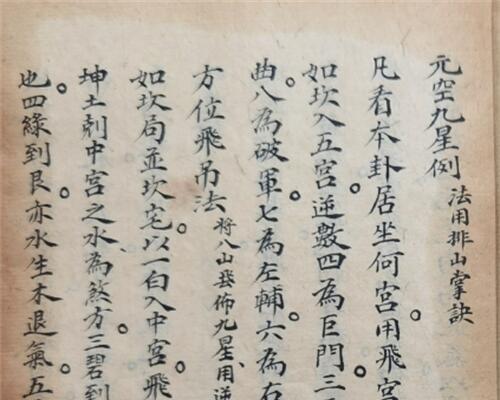 元空九星例 法用排山掌訣
凡看本卦居坐何宮用飛宮
如坎入五宮逆數四為巨門三
曲八為破軍七為左輔六為右
方位飛吊法 將八山發佈九星用逆
如坎局並坎宅以一白入中宮飛
坤土剋中宮之水為煞方三碧到
也四綠到艮亦水生木退氣五